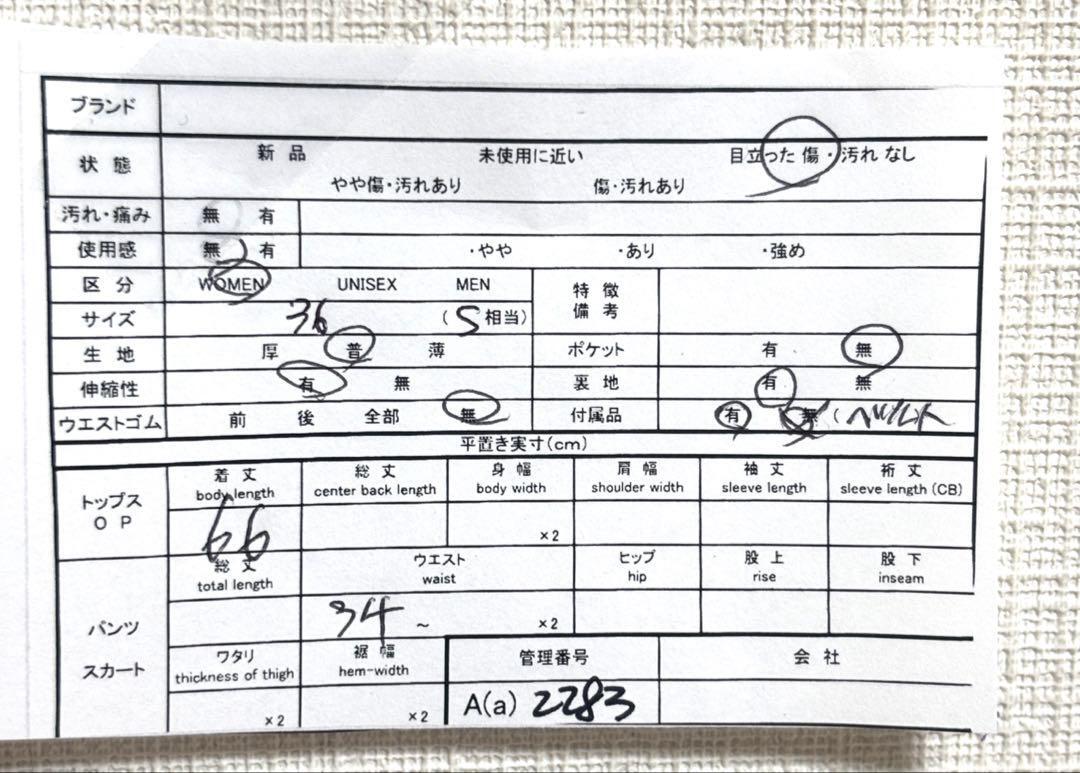 ブランド
状態 新品 未使用に近い 目立った傷・汚れなし
やや傷・汚れあり 傷・汚れあり
汚れ・痛み 無 有
使用感 無 有 ・やや ・あり ・強め
区分 WOMEN UNISEX MEN 特徴備考
サイズ 36 (S相当)
生地 厚 普 薄 ポケット 有 無
伸縮性 有 無 裏地 有 無
ウエストゴム 前 後 全部 無 付属品 有 無 (ベルト
平置き実寸(cm)
トップス OP
着丈 総丈 身幅 肩幅 袖丈 裄丈
body length center back length body width shoulder width sleeve length sleeve length (CB)
66 ×2
パンツ スカート
総丈 ウエスト ヒップ 股上 股下
total length waist hip rise inseam
34 ~ ×2
ワタリ 裾幅 管理番号 会社
thickness of thigh hem-width
×2 ×2 A(a) 2283